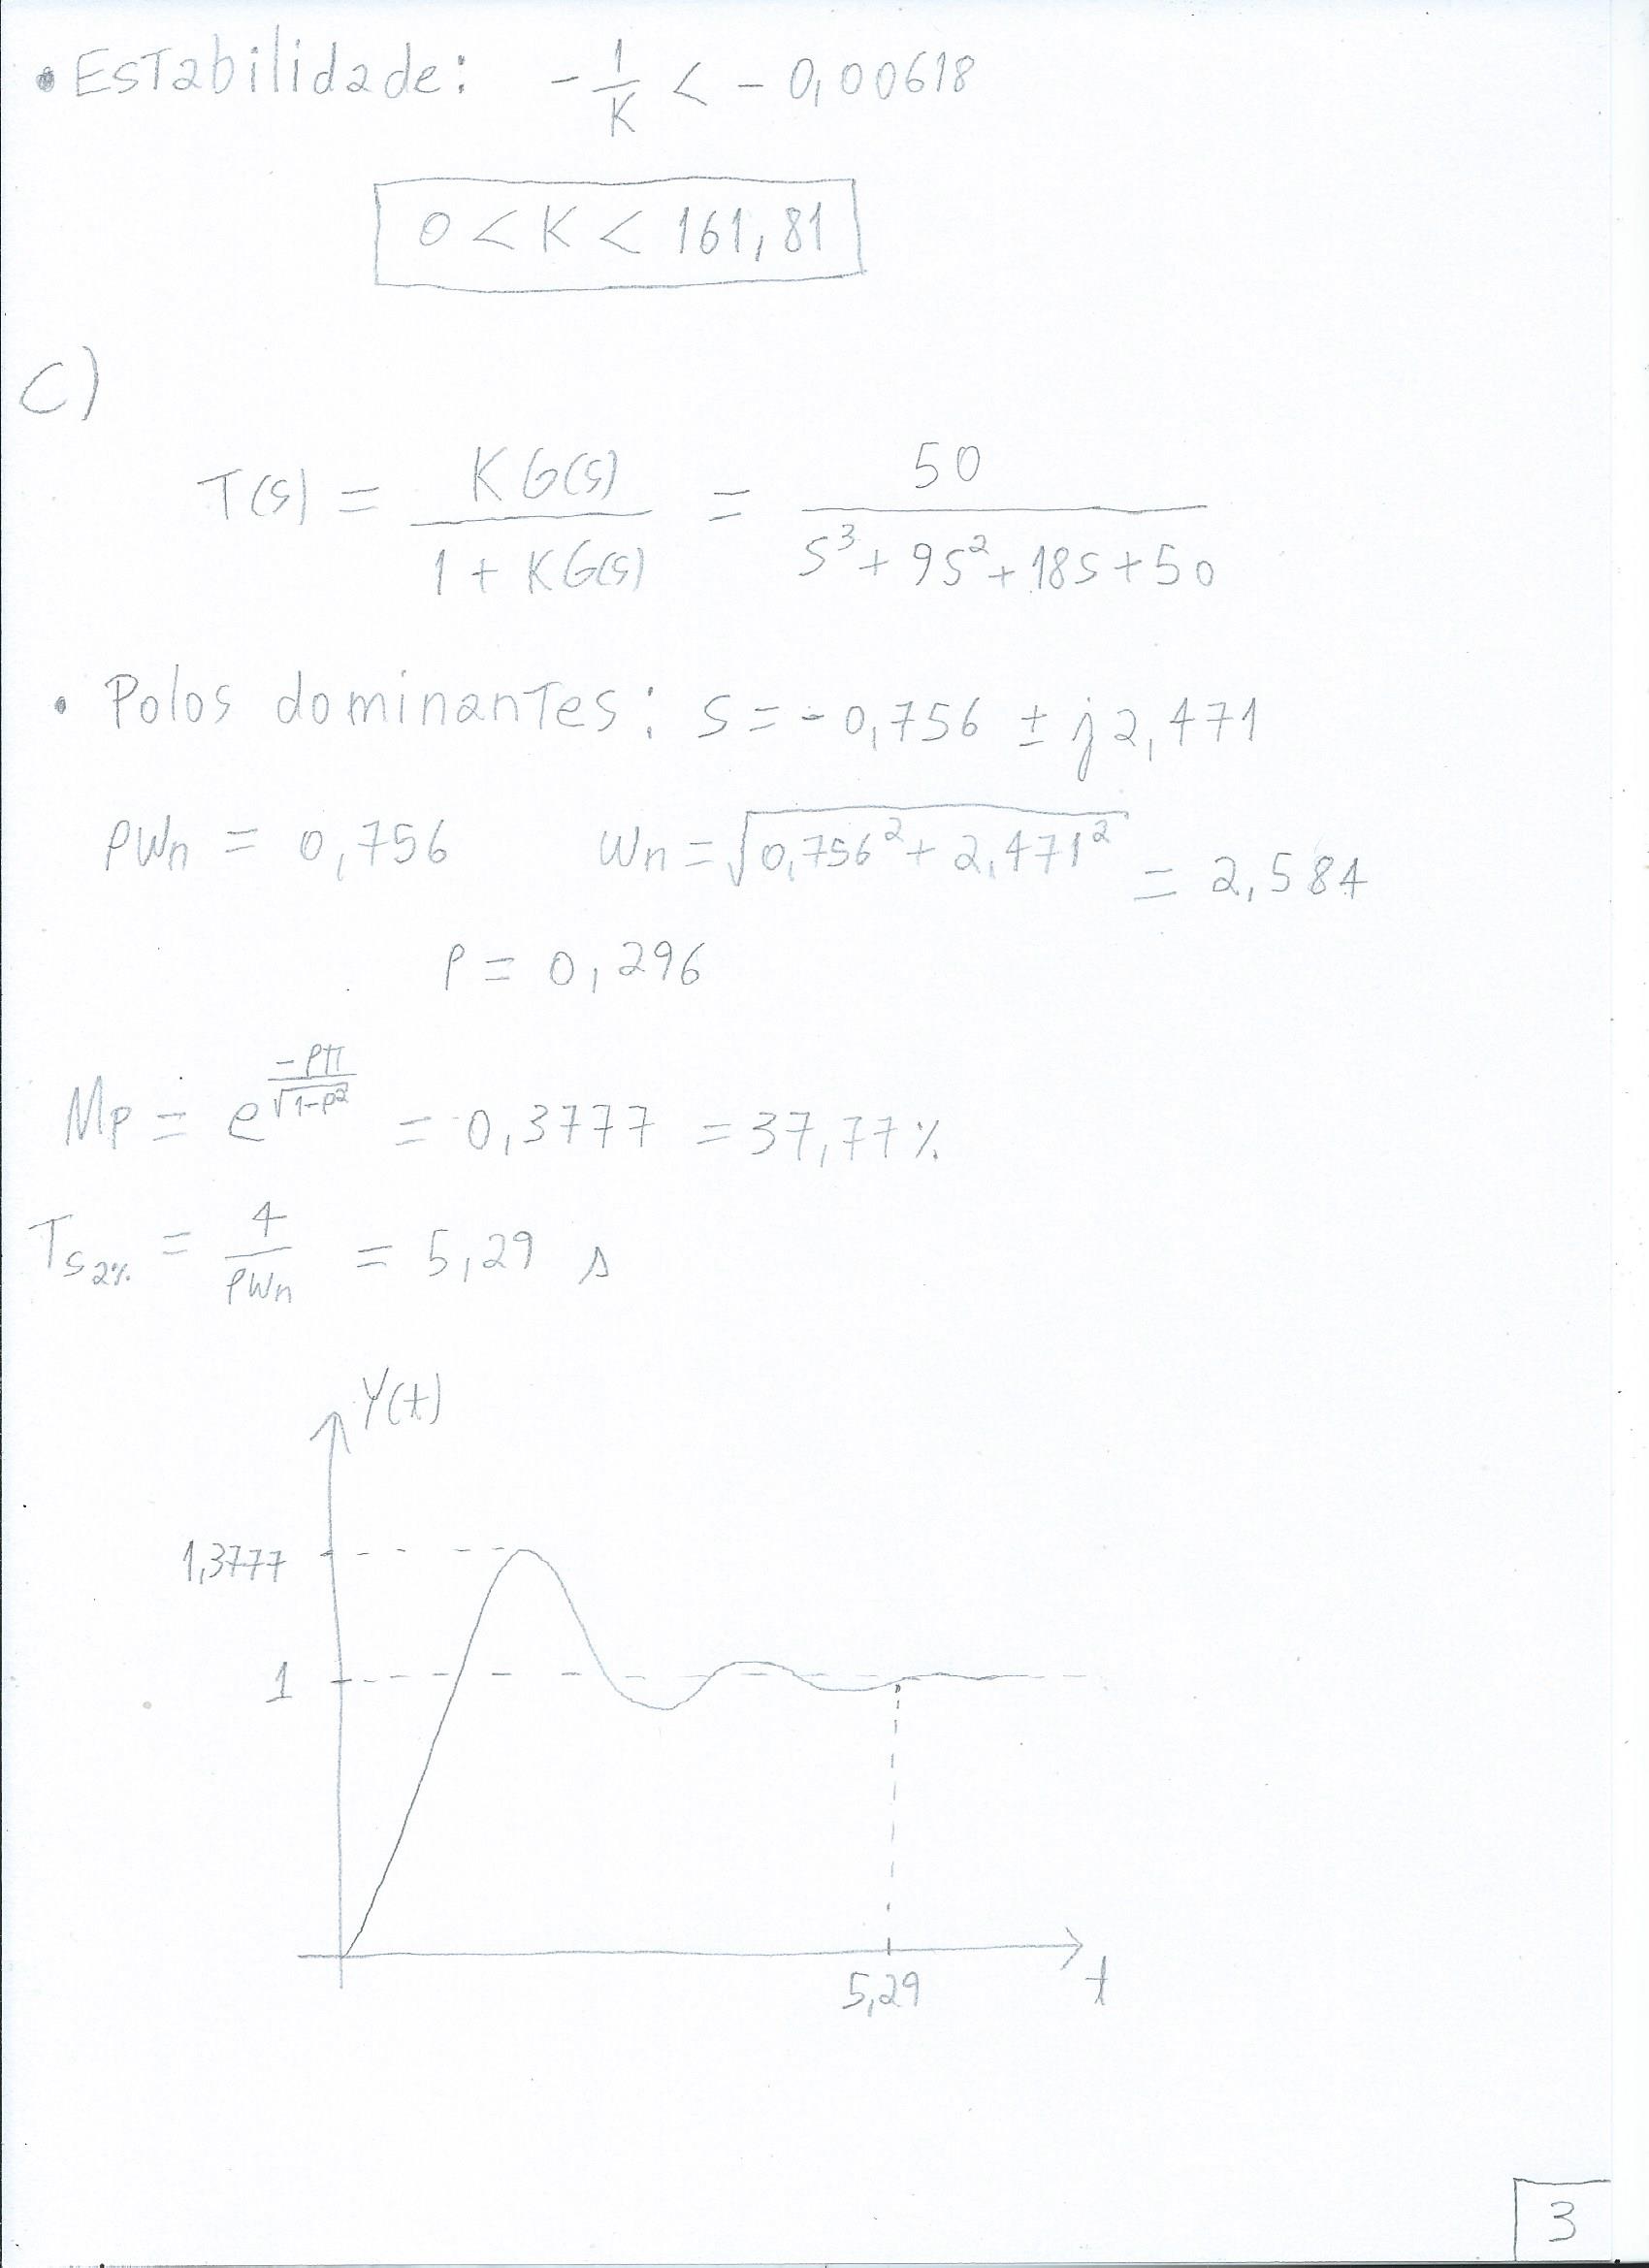 • Estabilidade: -1/K < -0,00618
0 < K < 161,81
C)
T(s) = KG(s) / 1 + KG(s) = 50 / s³ + 9s² + 18s + 50
• Polos dominantes: s = -0,756 ± j2,471
ρWn = 0,756 Wn = √0,756² + 2,471² = 2,584
ρ = 0,296
Mp = e^(-ρπ / √1-ρ²) = 0,3777 = 37,77%
Ts2% = 4 / ρWn = 5,29 s
Y(t)
1,3777
1
5,29
t
3